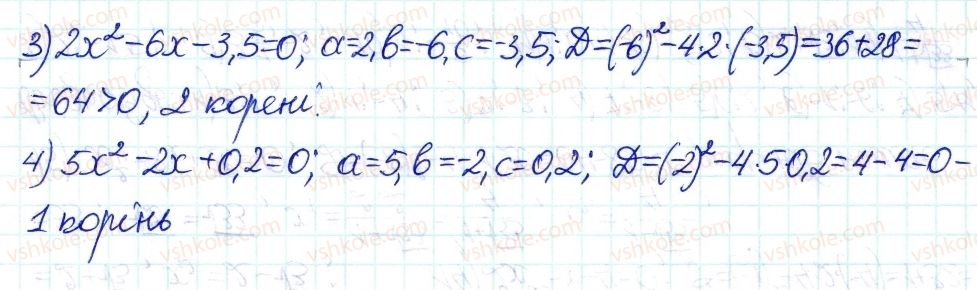 3) 2x² - 6x - 3,5 = 0; a = 2, b = -6, c = -3,5; D = (-6)² - 4·2·(-3,5) = 36 + 28 =
= 64 > 0, 2 корені.
4) 5x² - 2x + 0,2 = 0; a = 5, b = -2, c = 0,2; D = (-2)² - 4·5 0,2 = 4 - 4 = 0 -
1 корінь